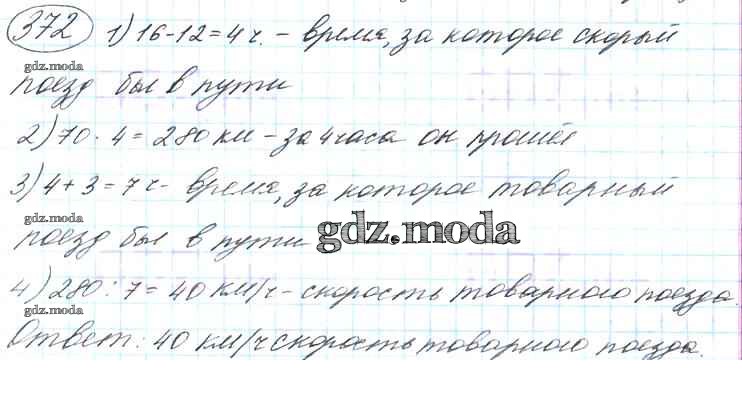 372 1) 16-12=4 ч. - время, за которое скорый
gdz.moda
поезд был в пути
gdz.moda
2) 70 · 4 = 280 км - за 4 часа он прошёл
3) 4 + 3 = 7 ч - время, за которое товарный
gdz.moda
поезд был в пути gdz.moda
gdz.moda
4) 280 : 7 = 40 км/ч - скорость товарного поезда.
gdz.moda
Ответ: 40 км/ч скорость товарного поезда.